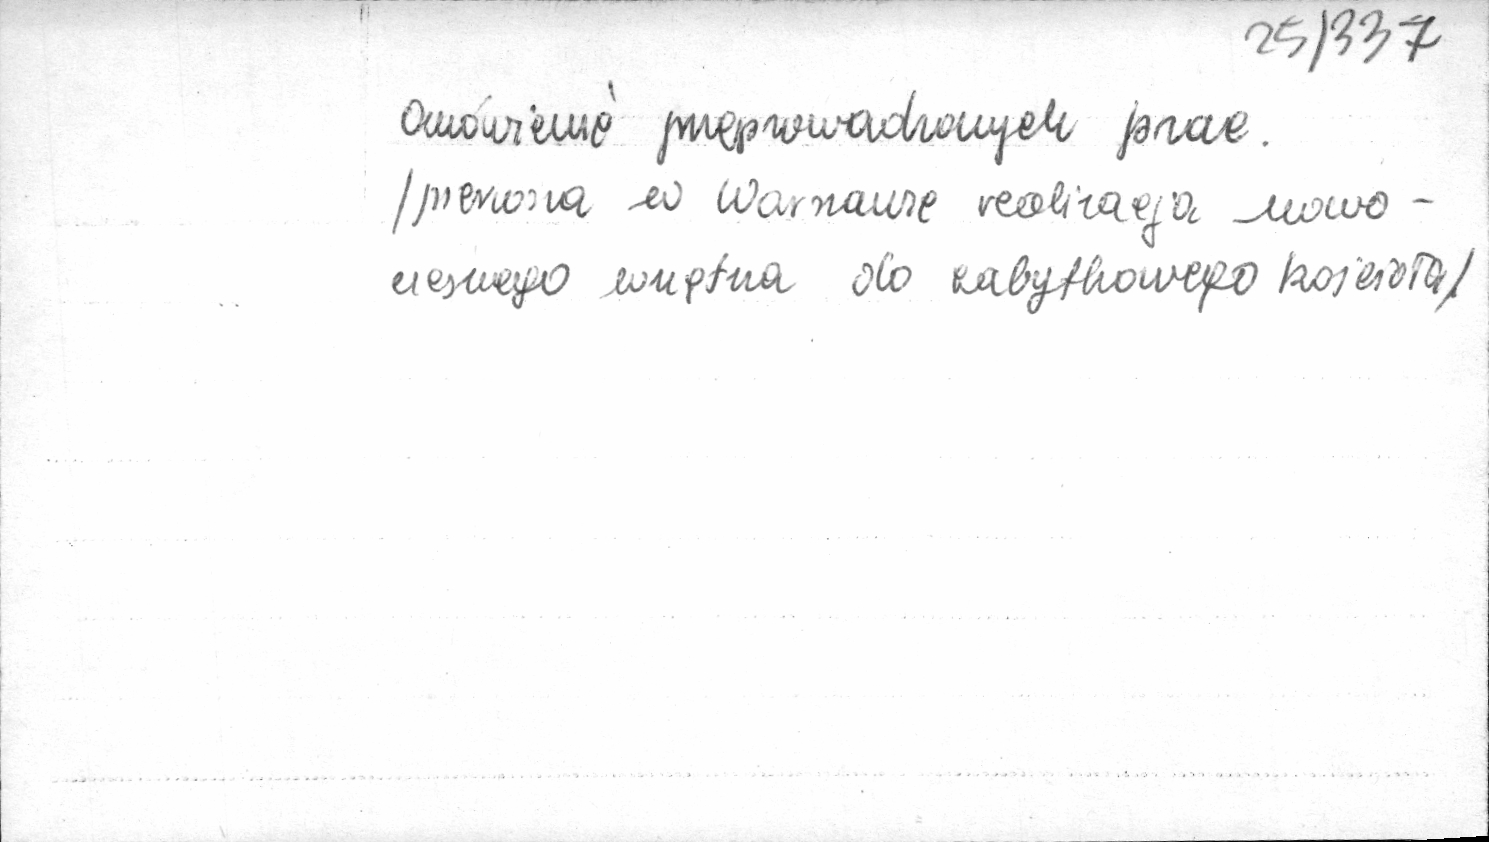 25/337
Omówienie przeprowadzonych prac.
/pierwsza w Warszawie realizacja nowo-
czesnego wnętrza do zabytkowego kościoła/